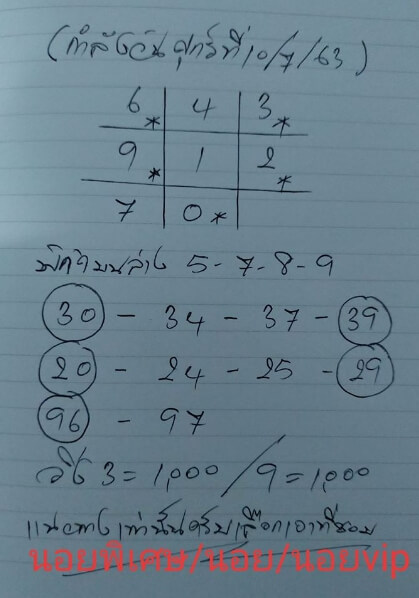 (กำลังวันศุกร์ที่10/7/63)
6* 4 3*
9* 1 2*
7 0*
5-7-8-9
30 - 34 - 37 - 39
20 - 24 - 25 - 29
96 - 97
วิ่ง 3 = 1,000 / 9 = 1,000
แนวทางเท่านั้นครับเลือกเอาที่ชอบ
นอยพิเศษ/นอย/นอยvip